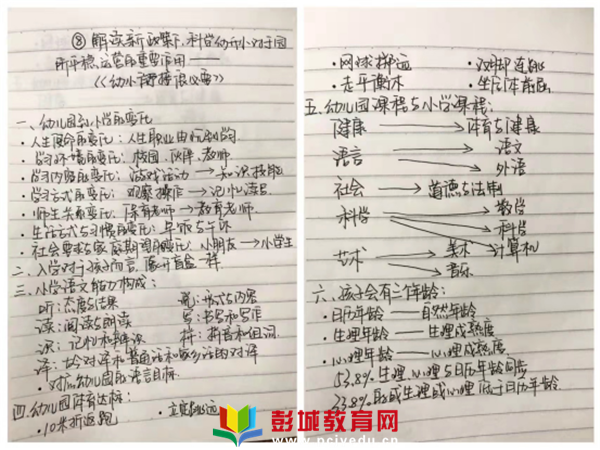 ⑧解读新政策下,科学幼小对于园
所平稳运营的重要作用——
《幼小衔接很必要》
一、幼儿园到小学的变化
·人生使命的变化:人生职业由玩到学习
·学习环境的变化:校园、伙伴、老师
·学习内容的变化:游戏活动→知识技能
·学习方式的变化:观察操作→记忆读写
·师生关系变化:保育老师→教育老师
·生活方式与习惯的变化:早晚与午休
·社会要求与家庭期望的变化:小朋友→小学生
二、入学对于孩子而言,像开盲盒一样
三、小学语文能力构成:
听:态度与结果 说:形式与内容
读:阅读与朗读 写:书写和写作
识:记忆和辨识 拼:拼音和组词
译:古今对译和普通话和家乡话的对译
·对应幼儿园的语言目标
四、幼儿园体育达标:
·10米折返跑 ·立定跳远
·网球掷远 ·双脚连跳
·走平衡木 ·坐位体前屈
五、幼儿园课程与小学课程:
健康→体育与健康
语言→语文
外语
社会→道德与法制
科学→数学
科学
计算机
艺术→美术
音乐
六、孩子会有三个年龄:
·日历年龄——自然年龄
·生理年龄——生理成熟度
·心理年龄——心理成熟度
53.8%生理心理与日历年龄同步
23.8%的或生理或心理低于日历年龄
彭城教育网
www.pcjyedu.cn